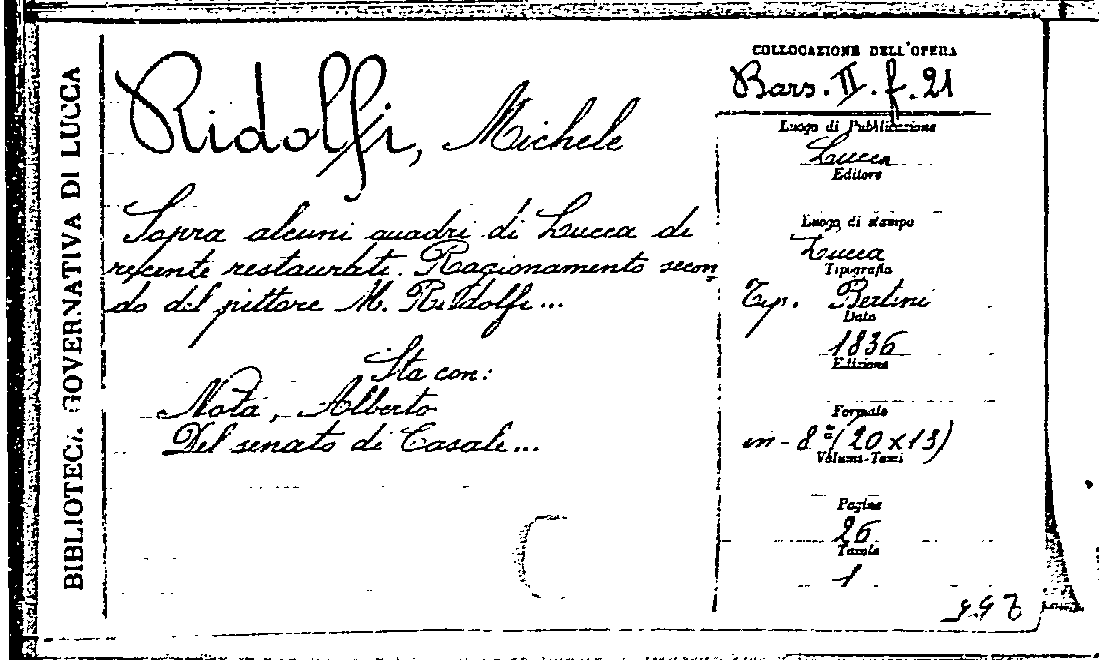 BIBLIOTECA GOVERNATIVA DI LUCCA
Ridolfi, Michele
Sopra alcuni quadri di Lucca di
recente restaurati. Ragionamento secon
do del pittore M. Ridolfi...
Sta con:
Nota, Alberto
Del senato di Casale...
COLLOCAZIONE DELL'OPERA
Bars. II. f. 21
Luogo di Pubblicazione
Lucca
Editore
Luogo di stampa
Lucca
Tipografia
Tip. Bertini
Data
1836
Edizione
Formato
in-8° (20x13)
Volumi-Tomi
Pagine
26
Tavole
1